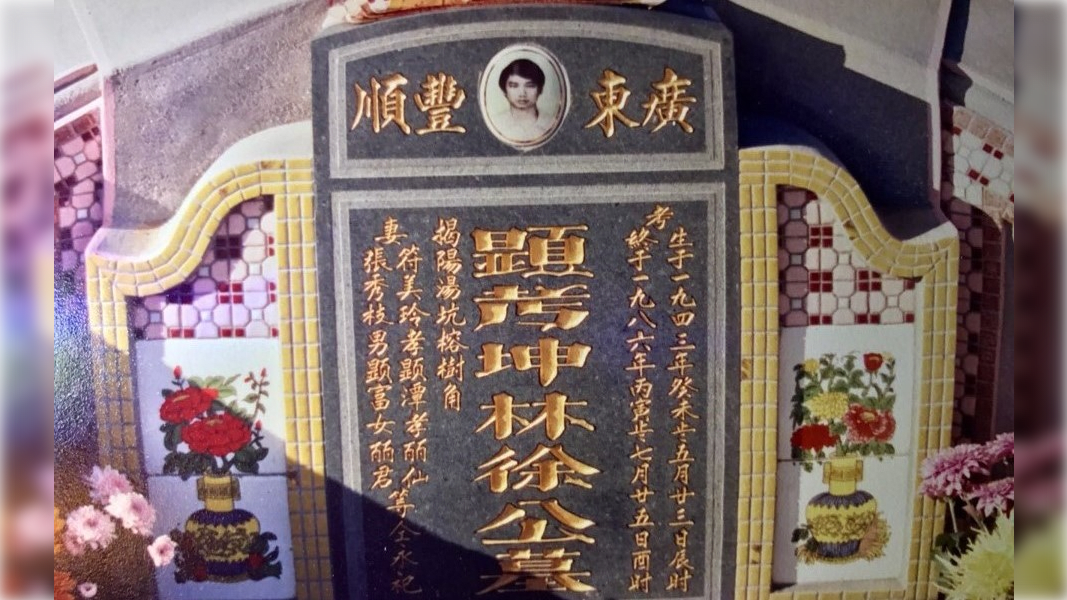 廣東豐順
考
生于一九四三年癸未五月廿三日辰时
終于一九八六年丙寅七月廿五日酉时
顕考坤林徐公墓
揭陽湯坑榕樹角
妻
符美玲孝顕潭孝丽仙
張秀枝男顕富女丽君
等仝永祀